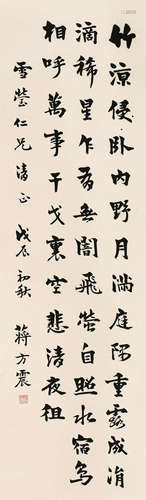 竹涼侵臥內野月滿庭隅重露成涓
滴稀星乍有無闇飛螢自照水宿鳥
相呼萬事干戈裏空悲清夜徂
雪瑩仁兄清正 戊辰初秋 蔣方震